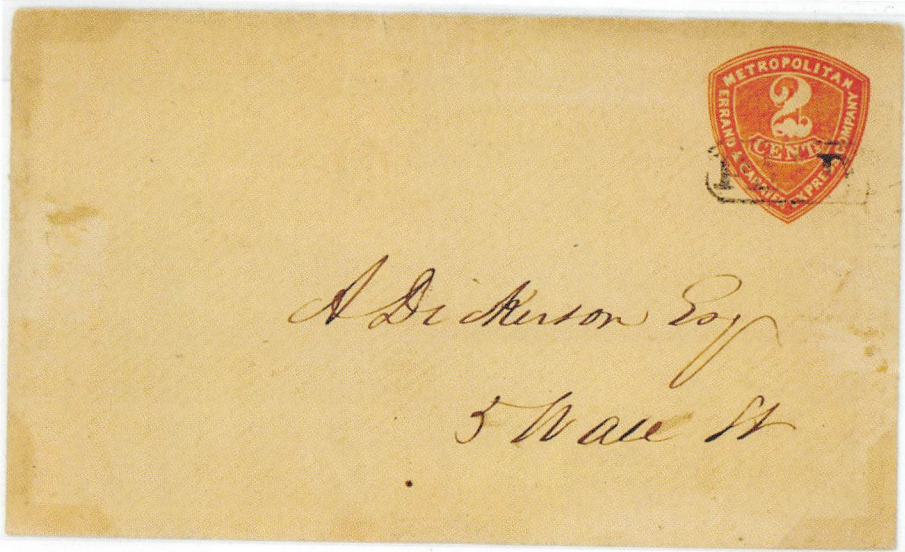 METROPOLITAN
ERRAND & CARRIER EXPRESS COMPANY
2
CENT
A Dickerson Esq
5 Wall St